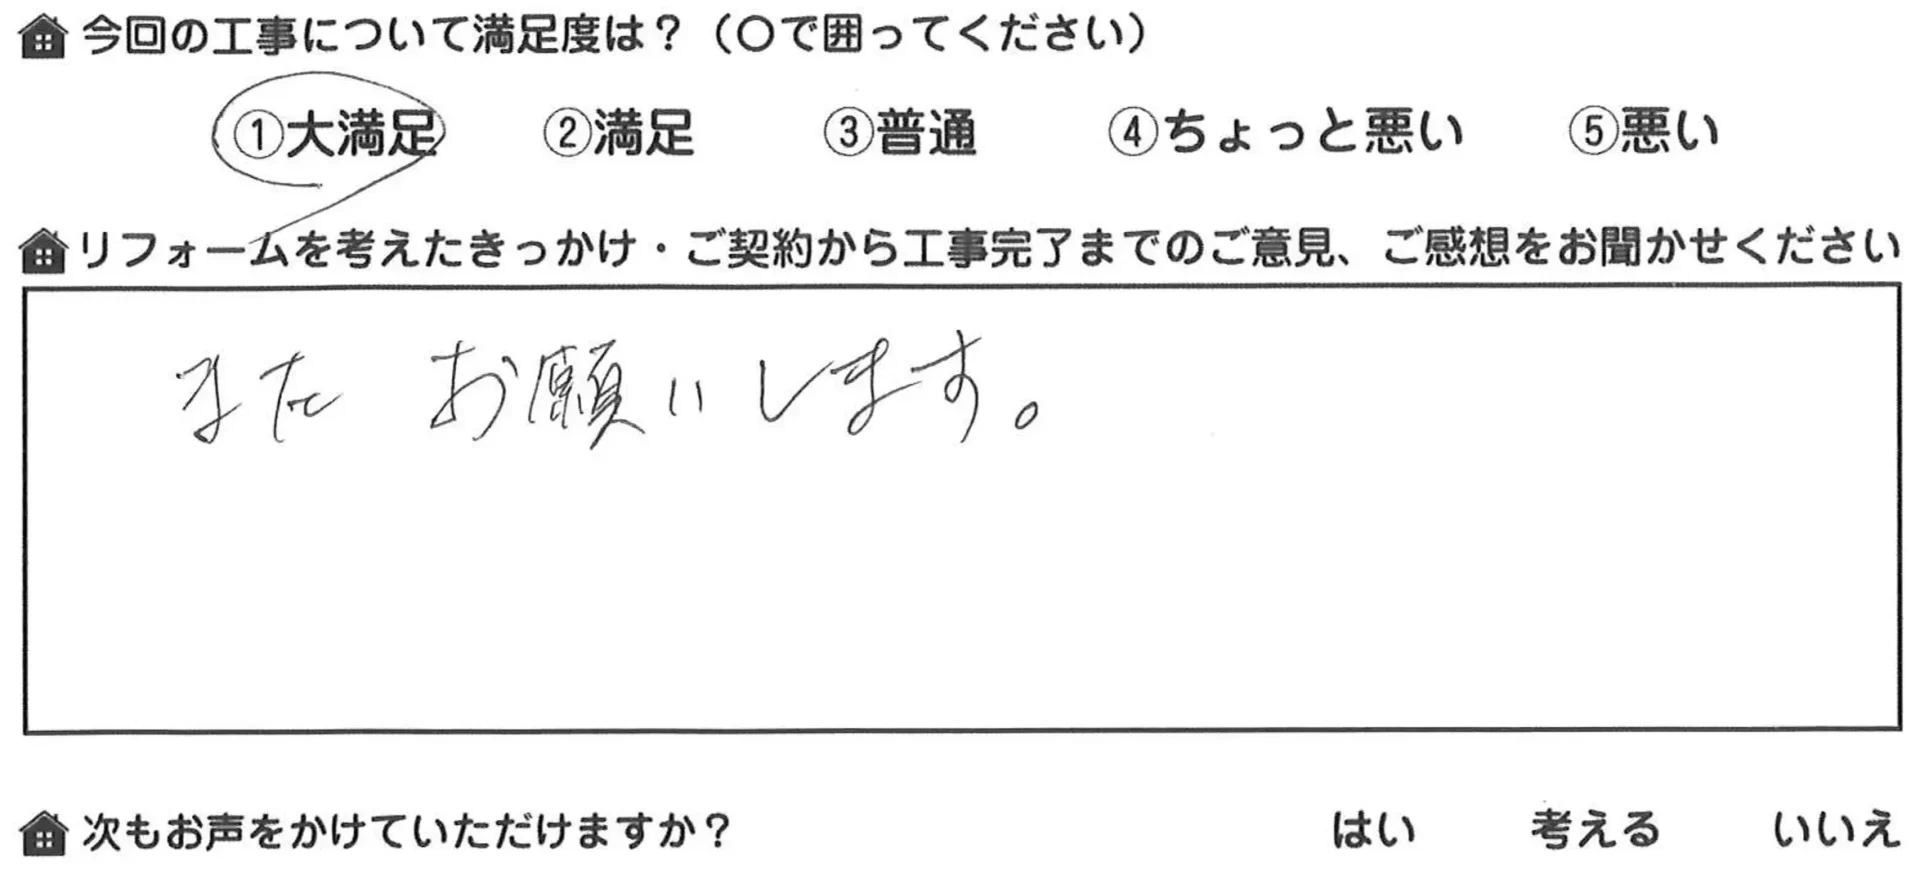 今回の工事について満足度は？（〇で囲ってください）
①大満足 ②満足 ③普通 ④ちょっと悪い ⑤悪い
リフォームを考えたきっかけ・ご契約から工事完了までのご意見、ご感想をお聞かせください
また お願いします。
次もお声をかけていただけますか？ はい 考える いいえ